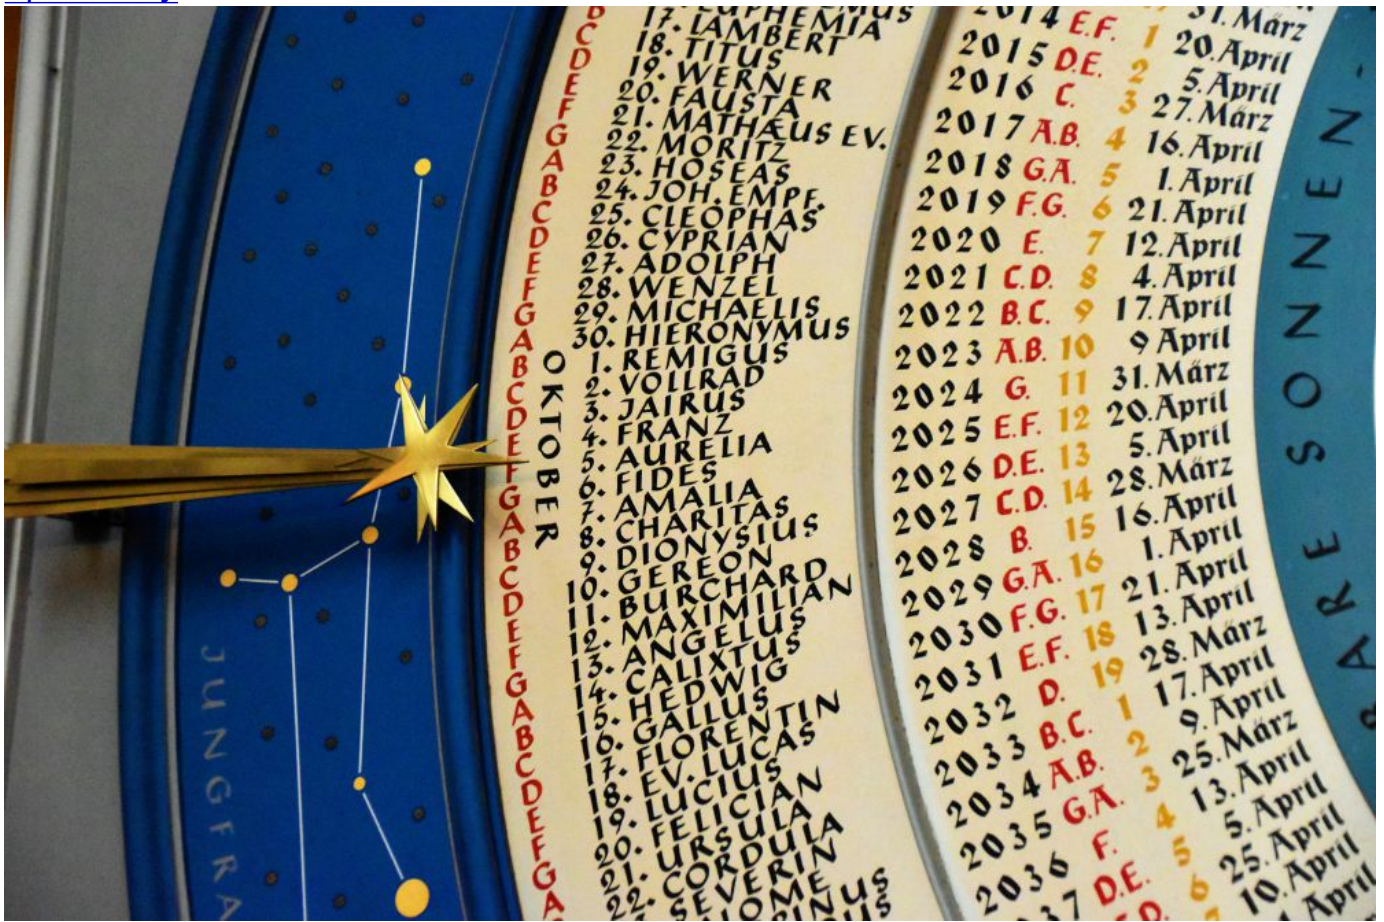 JUNGFRA
B
C
D
E
F
G
A
B
C
D
E
F
G
A
B
C
D
E
F
G
A
B
C
D
E
F
G
A
B
C
D
E
F
G
A
17. LAMBERT
18. TITUS
19. WERNER
20. FAUSTA
21. MATHÆUS EV.
22. MORITZ
23. HOSEAS
24. JOH. EMPF.
25. CLEOPHAS
26. CYPRIAN
27. ADOLPH
28. WENZEL
29. MICHAELIS
30. HIERONYMUS
OKTOBER
1. REMIGUS
2. VOLLRAD
3. JAIRUS
4. FRANZ
5. AURELIA
6. FIDES
7. AMALIA
8. CHARITAS
9. DIONYSIUS
10. GEREON
11. BURCHARD
12. MAXIMILIAN
13. ANGELUS
14. CALIXTUS
15. HEDWIG
16. GALLUS
17. FLORENTIN
18. EV. LUCAS
19. LUCIUS
20. FELICIAN
21. URSULA
22. CORDULA
SEVERIN
31. März
2014 E.F. 1 20. April
2015 D.E. 2 5. April
2016 C. 3 27. März
2017 A.B. 4 16. April
2018 G.A. 5 1. April
2019 F.G. 6 21. April
2020 E. 7 12. April
2021 C.D. 8 4. April
2022 B.C. 9 17. April
2023 A.B. 10 9 April
2024 G. 11 31. März
2025 E.F. 12 20. April
2026 D.E. 13 5. April
2027 C.D. 14 28. März
2028 B. 15 16. April
2029 G.A. 16 1. April
2030 F.G. 17 21. April
2031 E.F. 18 13. April
2032 D. 19 28. März
2033 B.C. 1 17. April
2034 A.B. 2 9. April
2035 G.A. 3 25. März
2036 F. 4 13. April
37 D.E. 5 5. April
6 25. April
10. April
April
BARE SONNEN-